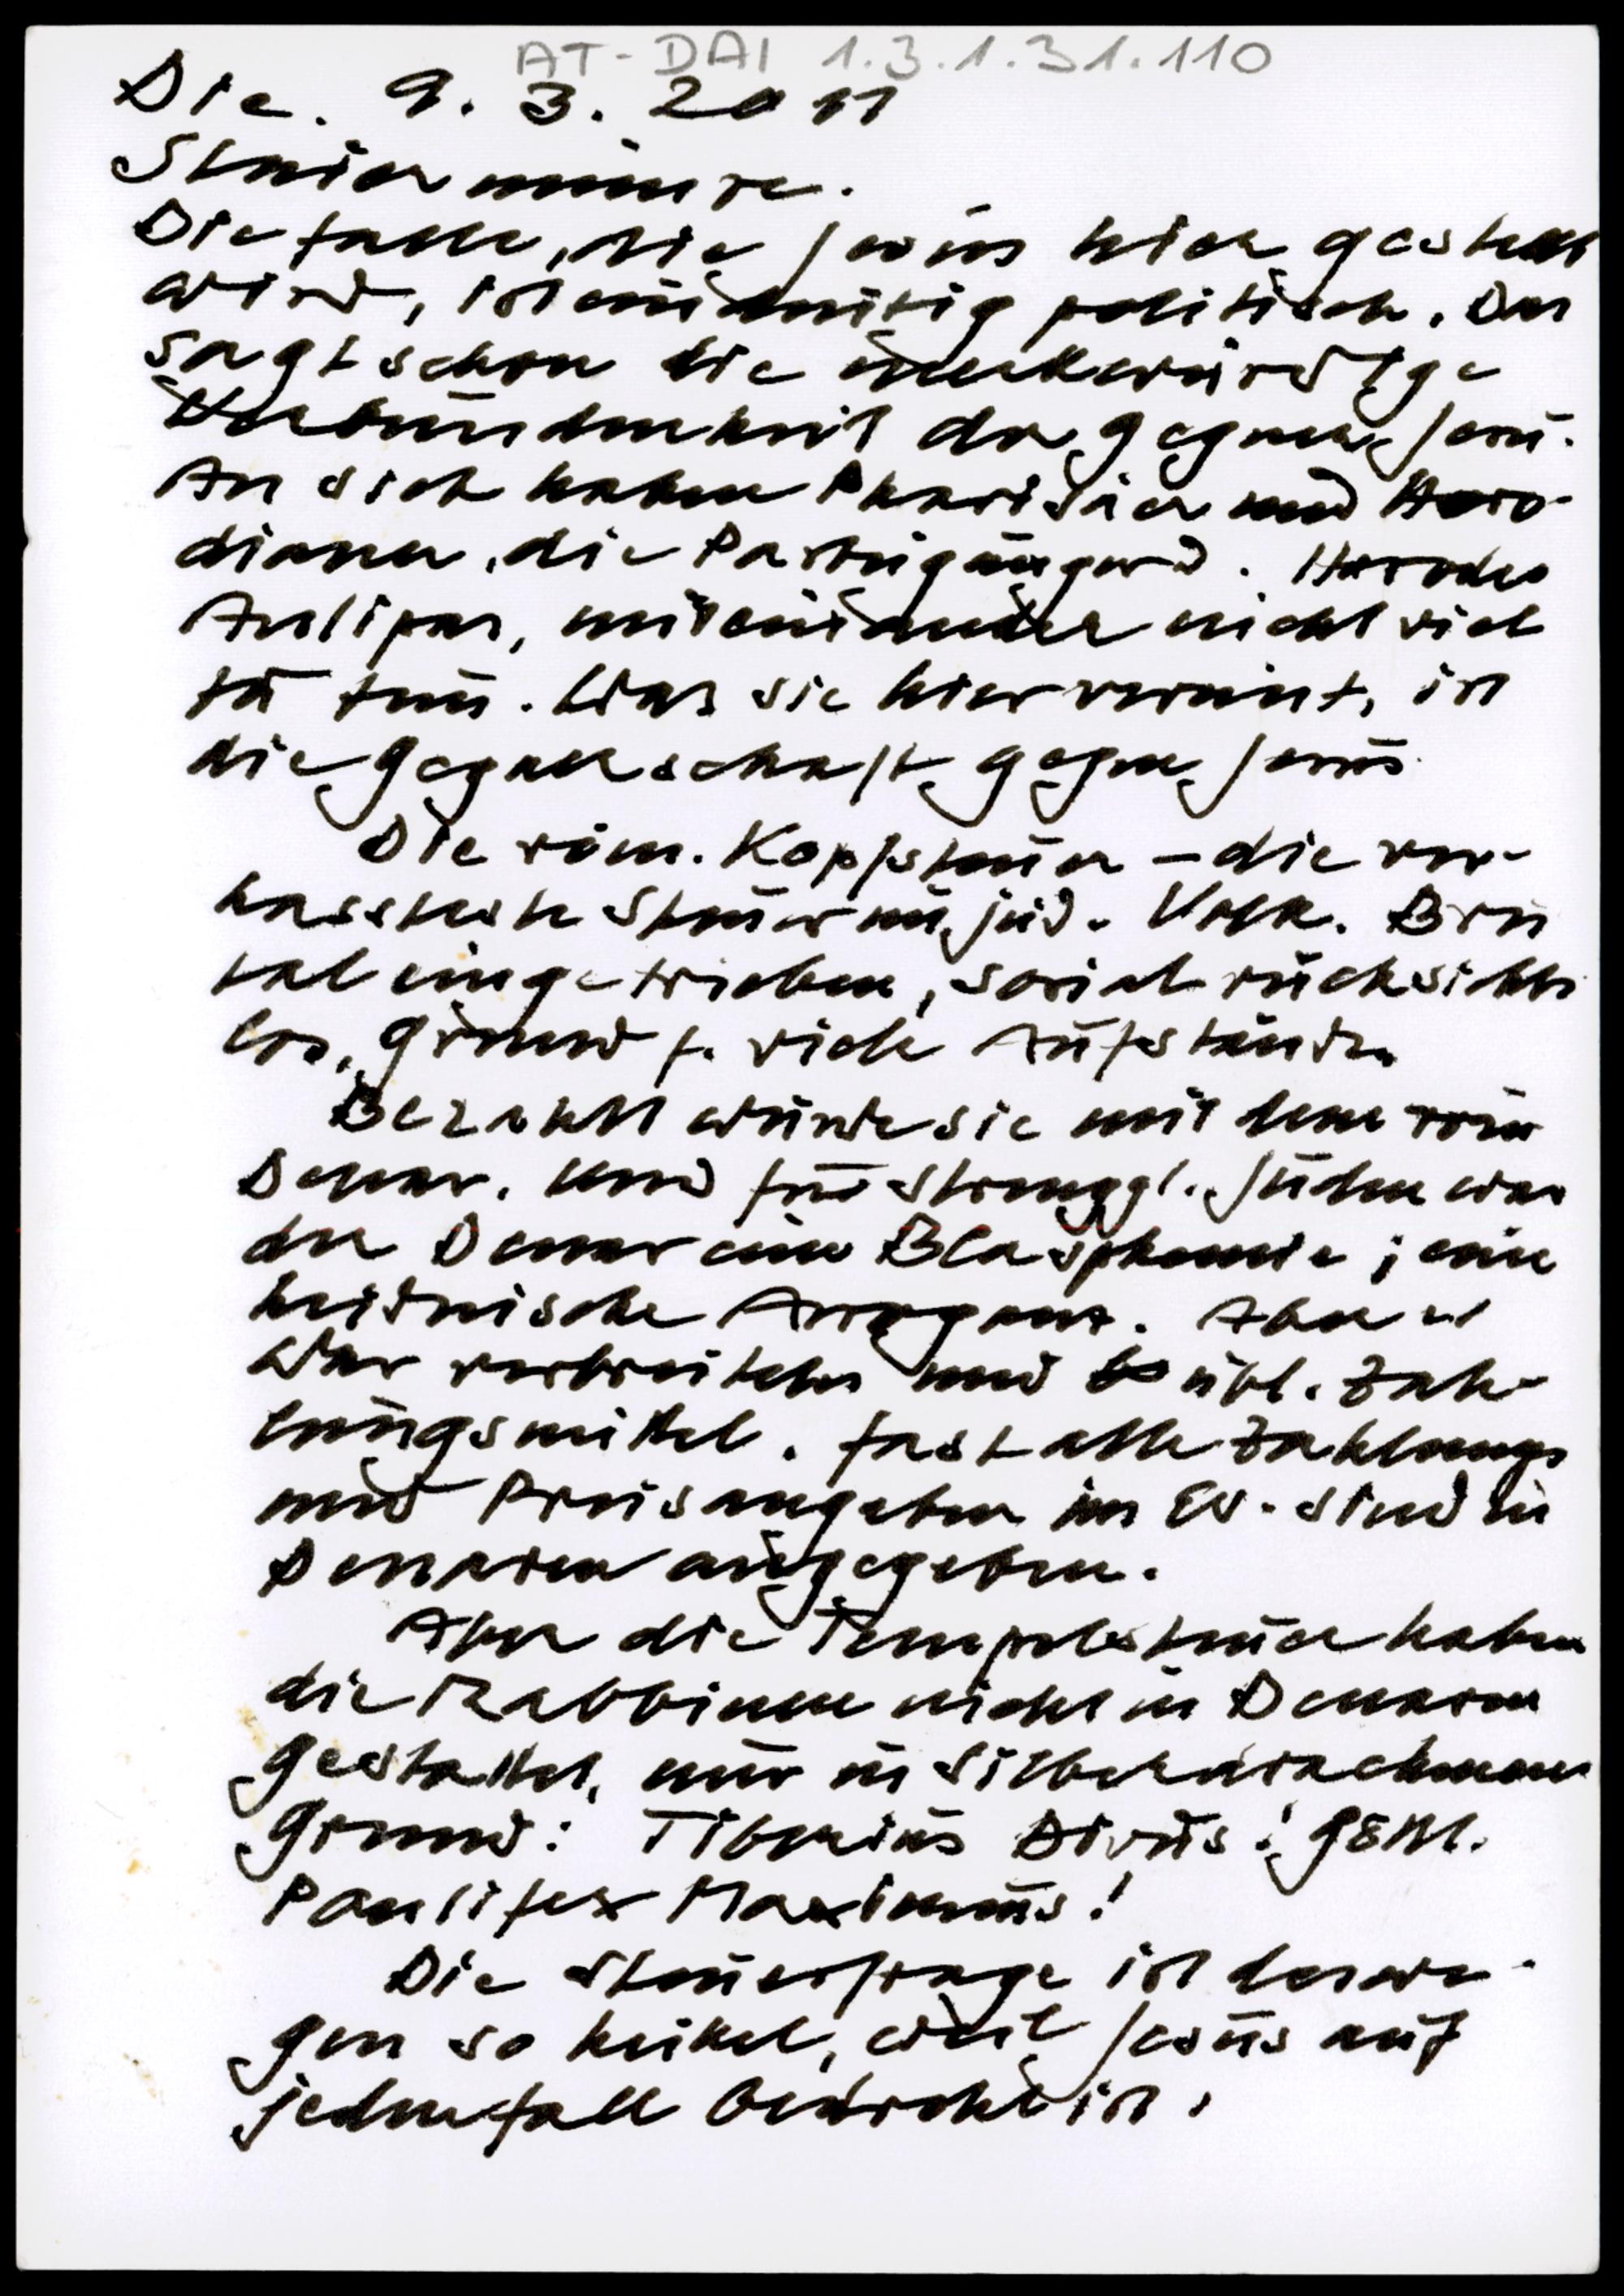 AT-DAI 1.3.1.31.110
Die. 9. 3. 2011
Steuermünze.
Die Falle, die Jesus hier gestellt
wird, ist eindeutig politisch. Das
sagt schon die merkwürdige
Verbündenheit der Gegner Jesu.
An sich haben Pharisäer und Hero-
dianer, die Parteigänger d. Herodes
Antipas, miteinander nicht viel
zu tun. Was sie hier vereint, ist
die Gegnerschaft gegen Jesus.
Die röm. Kopfsteuer – die ver-
hassteste Steuer im jüd. Volk. Bru
tal eingetrieben, sozial rücksichts
los, Grund f. viele Aufstände.
Bezahlt wurde sie mit dem röm
Denar. Und für strenggl. Juden war
der Denar eine Blasphemie; eine
heidnische Arroganz. Aber er
war verbreitetes und übl. Zah-
lungsmittel. Fast alle Zahlungs
und Preisangaben im Ev. sind in
Denaren angegeben.
Aber die Tempelsteuer haben
die Rabbinen nicht in Denaren
gestattet, nur in Silberdrachmen
Grund: Tiberius Divus! Göttl.
Pontifex Maximus!
Die Steuerfrage ist deswe-
gen so heikel, weil Jesus auf
jeden Fall bedroht ist.